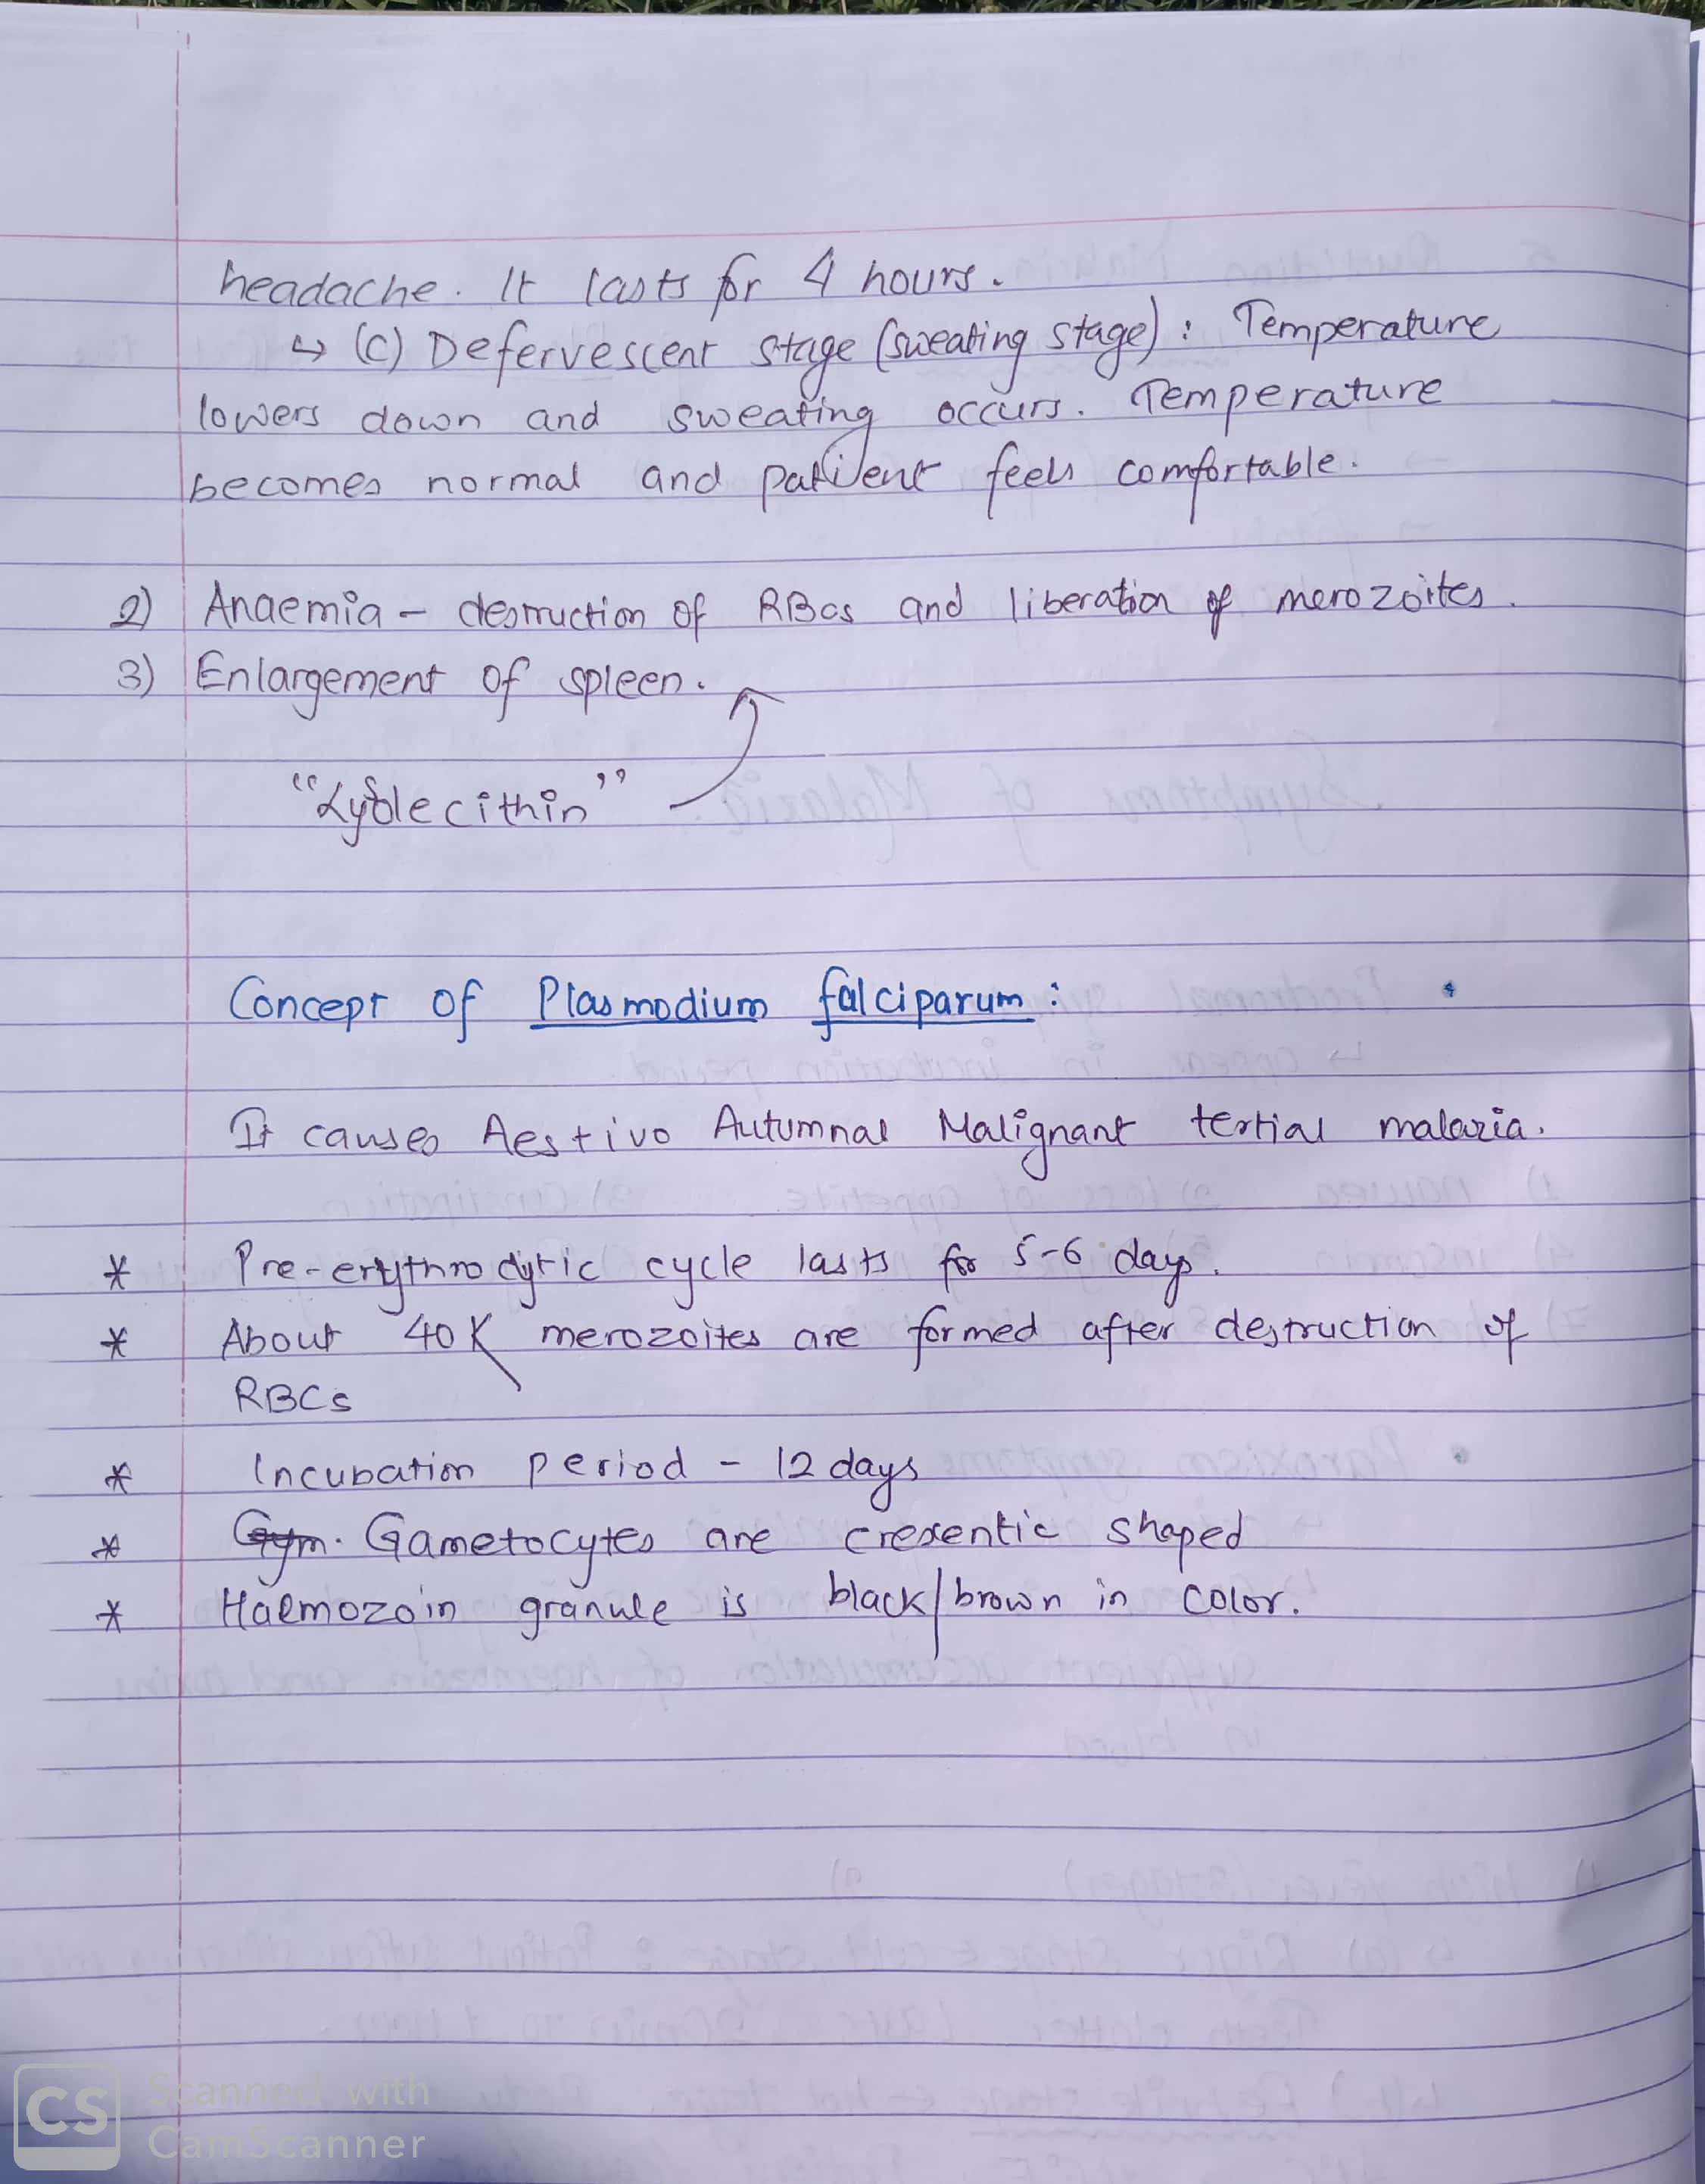 headache. It lasts for 4 hours.
↳ (c) Defervescent stage (sweating stage) : Temperature
lowers down and sweating occurs. Temperature
becomes normal and patient feels comfortable.
2) Anaemia - destruction of RBCs and liberation of merozoites.
3) Enlargement of spleen.
"Lysolecithin"
Concept of Plasmodium falciparum :
It causes Aestivo Autumnal Malignant tertial malaria.
* Pre-erythrocytic cycle lasts for 5-6 days.
* About 40K merozoites are formed after destruction of
RBCs
* Incubation period - 12 days
* Gym. Gametocytes are cresentic shaped
* Haemozoin granule is black/brown in color.
CS Scanned with
CamScanner